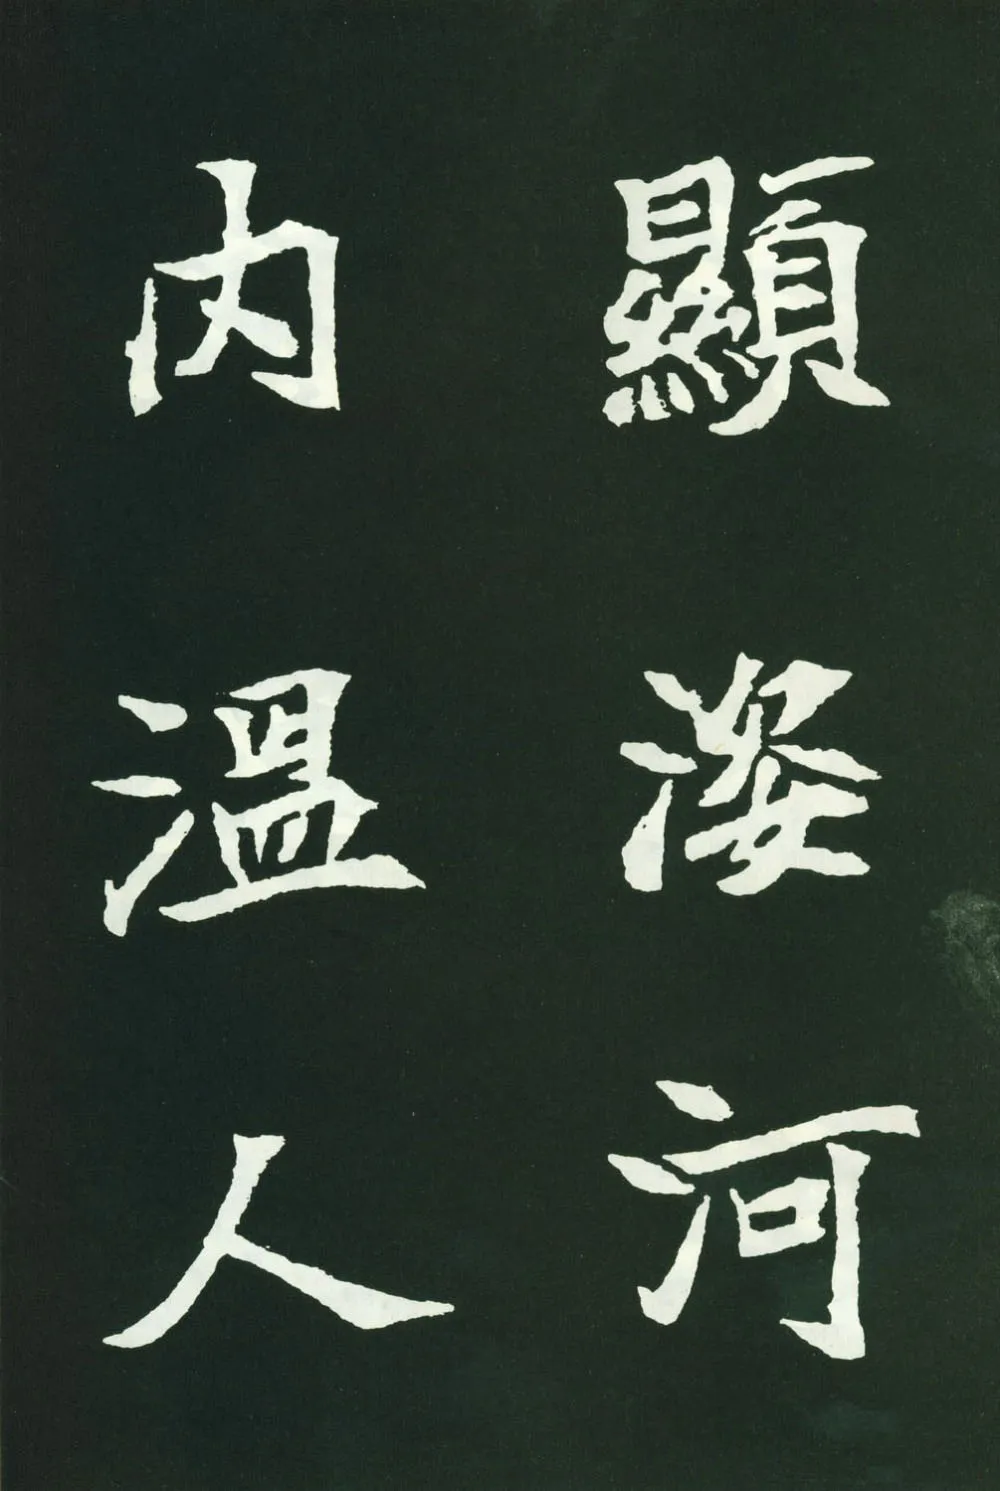 顯姿河
内溫人